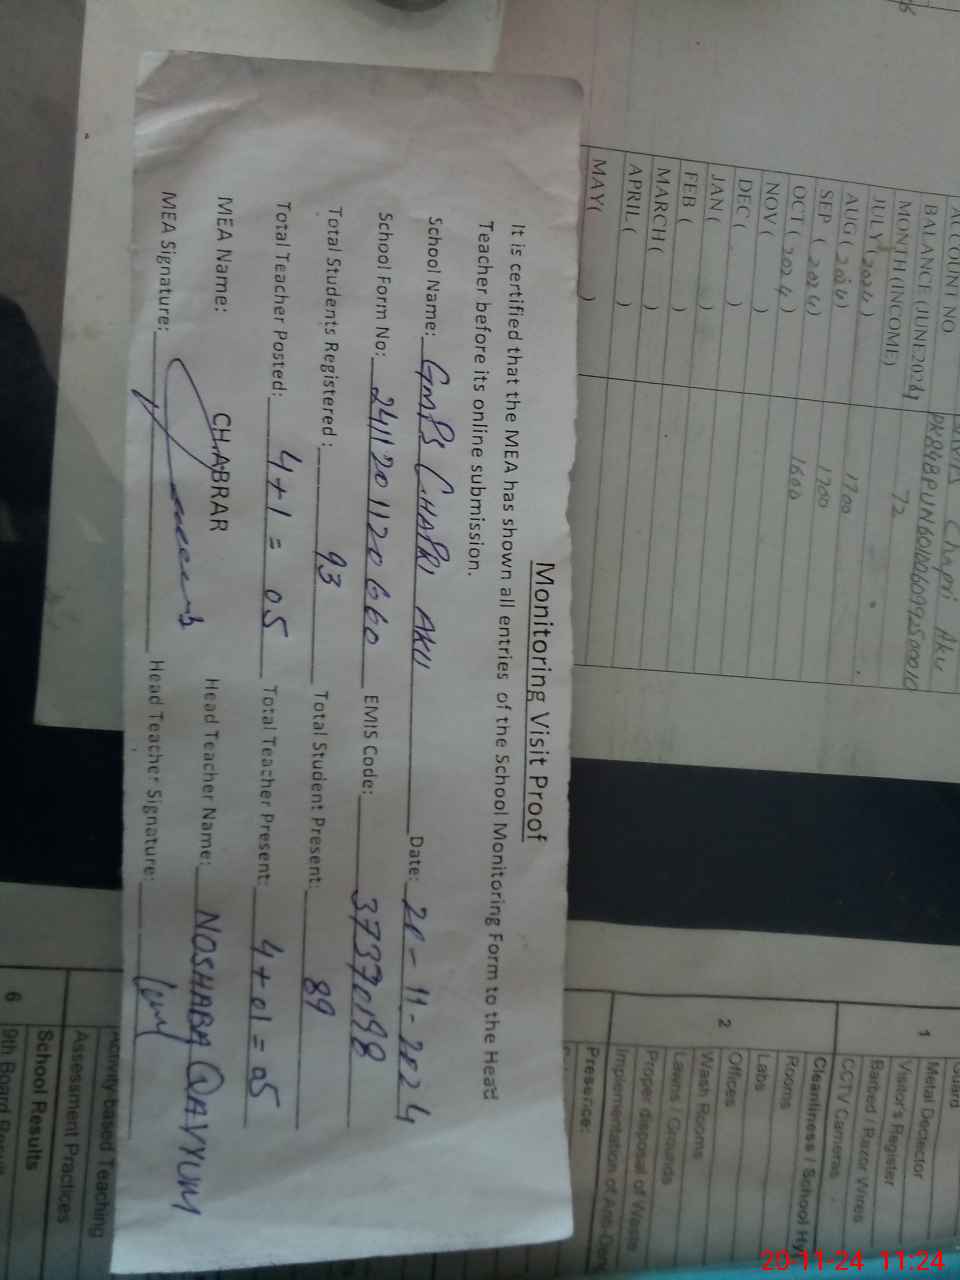 Monitoring Visit Proof
It is certified that the MEA has shown all entries of the School Monitoring Form to the Head
Teacher before its online submission.
School Name: GMPS CHAPRI AKU Date: 20-11-2024
School Form No: 2411201120660 EMIS Code: 37370198
Total Students Registered: 93 Total Student Present: 89
Total Teacher Posted: 4+1=05 Total Teacher Present: 4+01=05
MEA Name: CH.ABRAR Head Teacher Name: NOSHABA QAYYUM
MEA Signature: Head Teacher Signature:
ACCOUNT NO
Chapri Aku
BALANCE (JUNE2024
MONTH (INCOME) 72
JULY (2024)
AUG (2024) 1700
SEP (2024) 1700
OCT (2024) 1600
NOV ( )
DEC ( )
JAN ( )
FEB ( )
MARCH ( )
APRIL ( )
MAY( )
Guard
1 Metal Dectector
Visitor's Register
Barbed / Razor Wires
CCTV Cameras
Cleanliness / School Hy
Rooms
Labs
2 Offices
Wash Rooms
Lawns / Grounds
Proper disposal of Waste
Implementation of Anti-Den
Presence:
Activity based Teaching
Assessment Practices
School Results
6 9th Board
20-11-24 11:24